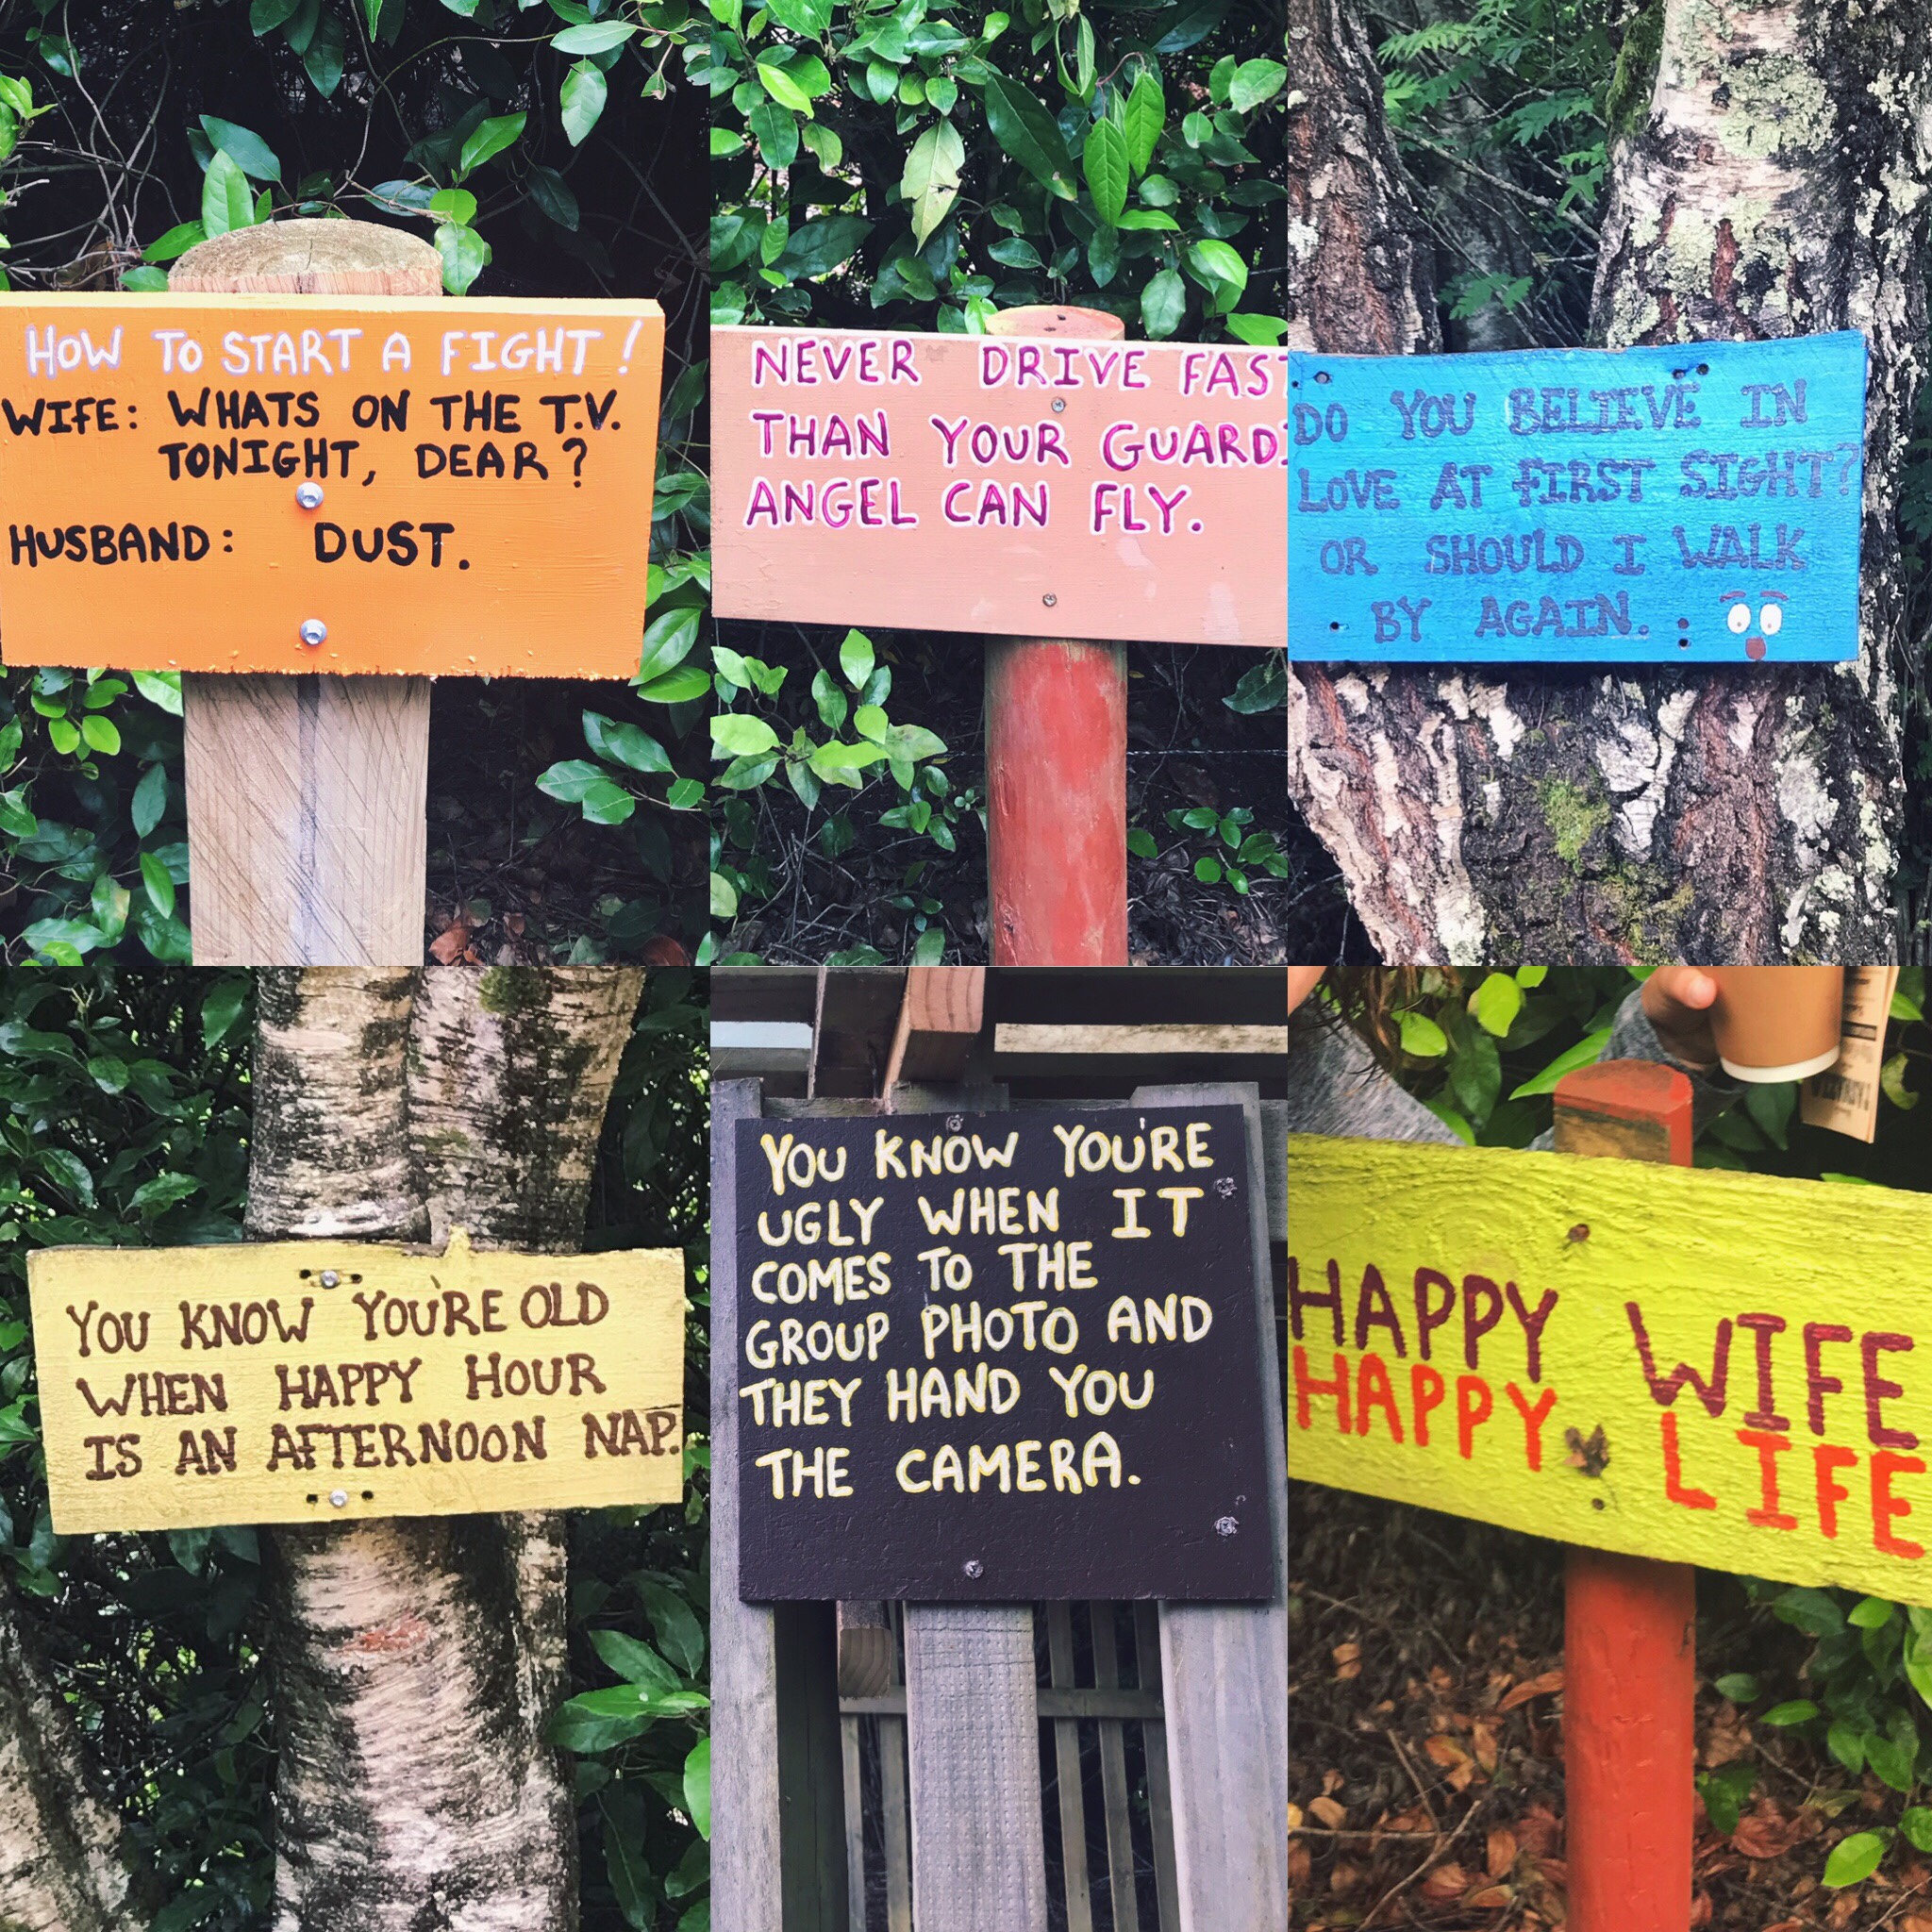 HOW TO START A FIGHT!
WIFE: WHATS ON THE T.V.
TONIGHT, DEAR?
HUSBAND: DUST.
NEVER DRIVE FAST
THAN YOUR GUARDI
ANGEL CAN FLY.
DO YOU BELIEVE IN
LOVE AT FIRST SIGHT?
OR SHOULD I WALK
BY AGAIN.
YOU KNOW YOU'RE OLD
WHEN HAPPY HOUR
IS AN AFTERNOON NAP.
YOU KNOW YOU'RE
UGLY WHEN IT
COMES TO THE
GROUP PHOTO AND
THEY HAND YOU
THE CAMERA.
HAPPY WIFE
HAPPY LIFE